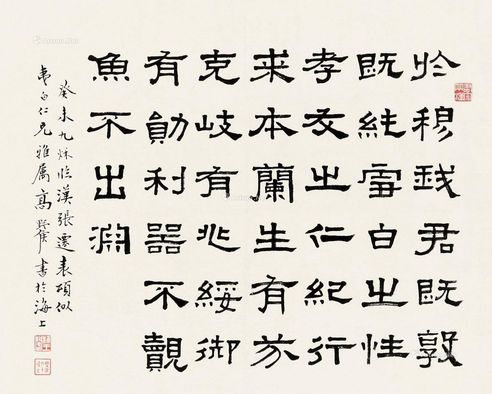 於穆我君既敦
既純雪白之性
孝友之仁紀行
求本蘭生有芬
克岐有兆綏御
有勛利器不覿
魚不出淵
癸未九秌临漢張遷表頌似
夷白仁兄雅屬 高野侯書於海上